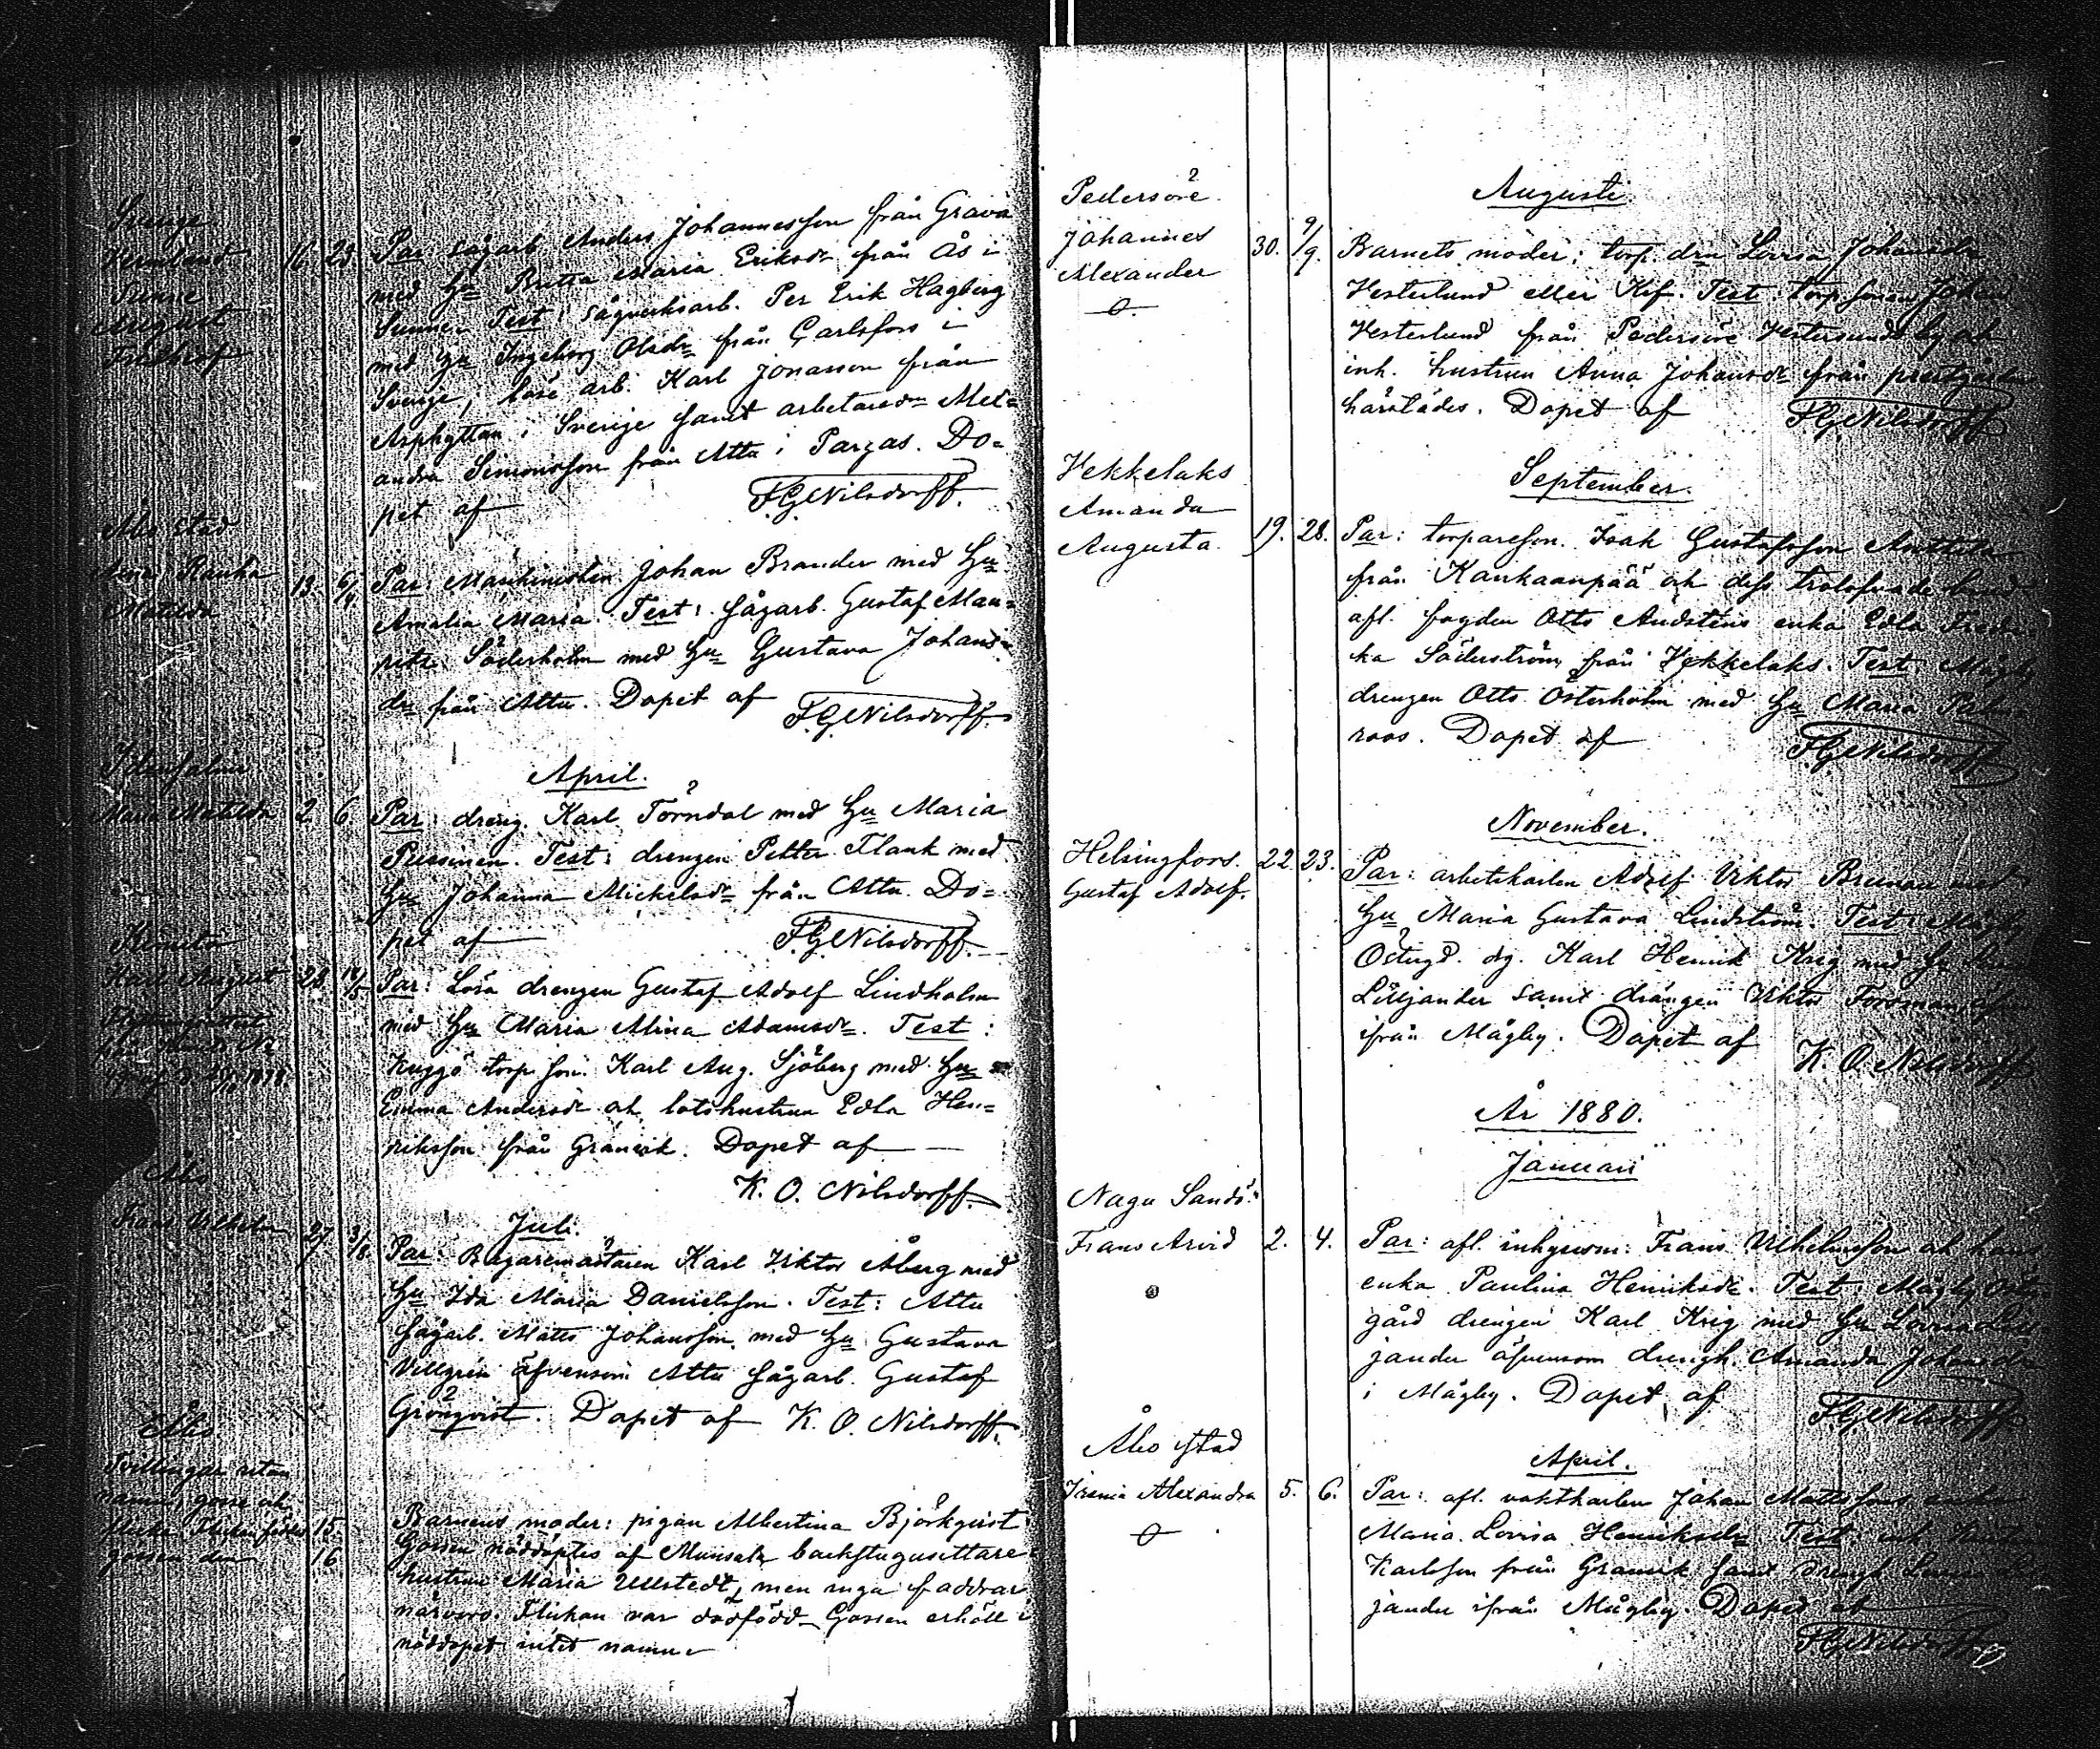 Sverige
Vermland
Sunne
August
Frithiof
16. 23. Par: sågarb. Anders Johannesson från Grava
med Hu Britta Maria Eriksdr från Ås i
Sunne. Test: sågverksarb. Per Erik Hagberg
med Hu Ingeborg Olsdr från Carlsfors i
Sverige, löse arb. Karl Jonasson från
Asphyttan i Sverige samt arbetaredr Mel=
andra Simonsson från Attu i Pargas. Do=
pet af F.G. Nilsdorff.
Åbo stad
Rauha
Matilda
13. 6/4 Par: Maskinisten Johan Brander med Hu
Amalia Maria. Test: sågarb. Gustaf Man=
Söderholm med Hu Gustava Johans=
dr från Attu. Dopet af F.G. Nilsdorff.
April.
Maria Matilda 2. 6. Par: dreng. Karl Törndal med Hu Maria
Pussinen. Test: drengen Petter Flank med
Hu Johanna Mickelsdr från Attu. Do=
pet af F.G. Nilsdorff.
Kimito
Karl August 28. 14/5 Par: Lösa drengen Gustaf Adolf Lindholm
med Hu Maria Mina Adamsdr. Test:
Kuggö torp. son. Karl Aug. Sjöberg med Hu
Emma Andersdr och lotshustrun Edla Hen=
riksson från Gränvik. Dopet af
K. O. Nilsdorff.
Åbo
Juli.
Frans Vilhelm 27. 3/8. Par: Bagaremästaren Karl Viktor Åberg med
Hu Ida Maria Danielsson. Test: Attu
sågarb. Matts Johansson med Hu Gustava
Villgrén äfvensom Attu sågarb. Gustaf
Grönqvist. Dopet af K. O. Nilsdorff.
Åbo
Tvillingar utan
namn, gosse och
flicka. Flickan föddes 15.
gossen den 16
Barnens moder: pigan Albertina Björkqvist
Gossen nöddöptes af Munsala backstugusittare
hustrun Maria Ullstedt, men inga faddrar
närvoro. Flickan var dödfödd. Gossen erhöll i
nöddopet intet namn.
Pedersöre.
Johannes
Alexander
Augusti.
30. 9/9. Barnets moder: torp. drn Lovisa Johansdr
Vesterlund eller Kif. Test: torp. sonen Johan
Vesterlund från Pedersöre Vestersundsby och
inh. hustrun Anna Johansdr från prestgården
härstädes. Dopet af F.G. Nilsdorff
Vekkelaks
Amanda
Augusta.
September.
19. 28. Par: torpareson. Isak Gustafsson Anttila
från Kankaanpää och dess trolofvade brud
afl. fogden Otto Audsténs enka Edla Fredri=
ka Söderström från Vekkelaks. Test: Mågby
drengen Otto Österholm med Hu Maria Pal=
roos. Dopet af F.G. Nilsdorff
November.
Helsingfors. 22 23.
Gustaf Adolf.
Par: arbetskarlen Adolf Viktor Brunau med
Hu Maria Gustava Lindström. Test: Mågby
Östergd. dg. Karl Henrik Krig med Hu
Liljander samt drängen Viktor Forsman,
ifrån Mågby. Dopet af K. O. Nilsdorff
År 1880.
Januari
Nagu Sandö.
Frans Arvid 2. 4. Par: afl. inhysesm: Frans Vilhelmsson och hans
enka Paulina Henriksdr. Test: Mågby Öster=
gård drengen Karl Krig med Hu Lovisa Lill=
jander äfvensom drengh. Amanda Johansdr
i Mågby. Dopet af F.G. Nilsdorff
Åbo stad
April.
Irenia Alexandra 5. 6. Par: afl. vaktkarlen Johan Mattssons enka
Maria Lovisa Henriksdr. Test:
Karlsson från Gränvik samt drengh.
jander ifrån Mågby. Dopet af
F.G. Nilsdorff